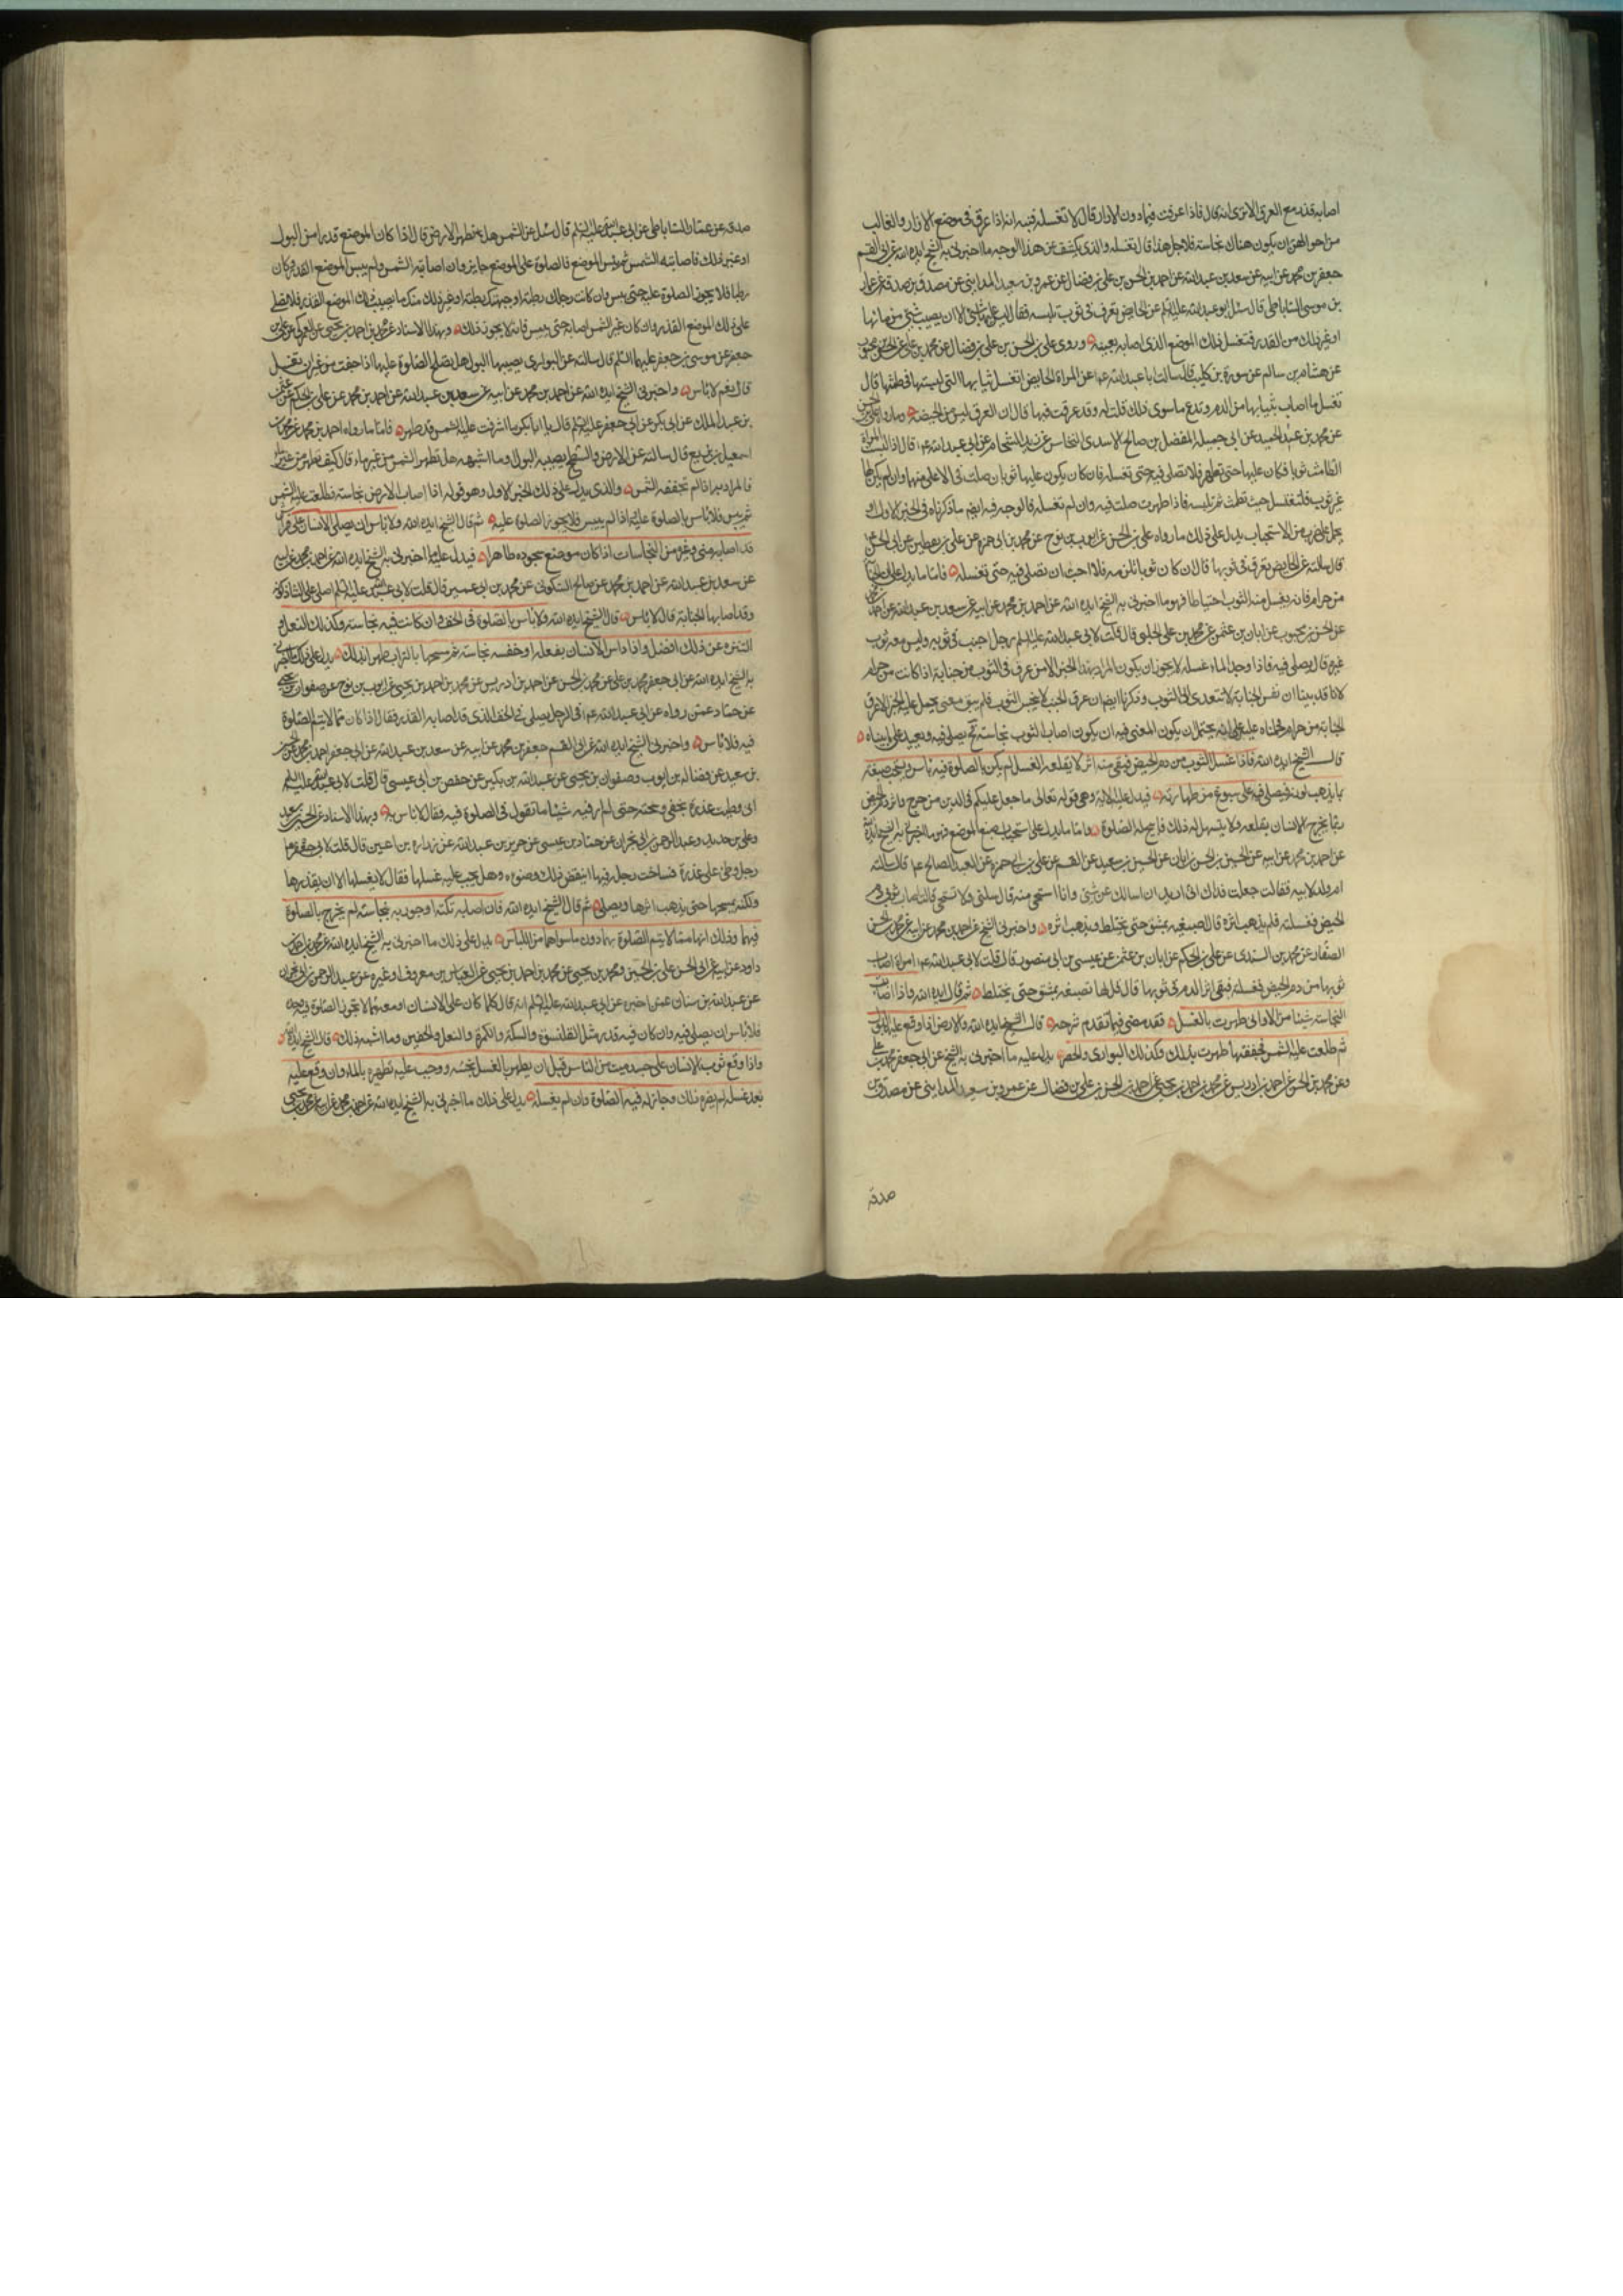 اصابه قذر مع العرق الا ترى انه قال فاذا عرقت فيما دون الازار قال لا تغسله فنبه انه اذا عرق في موضع الازار والغالب
من احوالهن ان يكون هناك نجاسة فلاجل هذا قال تغسله والذي يكشف عن هذا الوجه ما اخبرني به الشيخ ايده الله عن ابي القسم
جعفر بن محمد عن ابيه عن سعد بن عبدالله عن احمد بن الحسن بن علي بن فضال عن عمرو بن سعيد المدايني عن مصدق بن صدقة عن عمار
بن موسى الساباطي قال سئل ابو عبدالله عليه السلم عن الحايض تعرق في ثوب تلبسه فقال ليس عليها شئ الا ان يصيب شئ من مائها
او غير ذلك من القذر فتغسل ذلك الموضع الذي اصابه بعينه وروى علي بن الحسن بن علي بن فضال عن محمد بن علي عن الحسن بن محبوب
عن هشام بن سالم عن سورة بن كليب قال سالت ابا عبدالله عم عن المراة الحايض اتغسل ثيابها التي لبستها في طمثها قال
تغسل ما اصاب ثيابها من الدم وتدع ما سوى ذلك قلت له وقد عرقت فيها قال ان العرق ليس من الحيضة وما رواه علي بن الحسن
عن محمد بن عبد الحميد عن ابي جميلة المفضل بن صالح الاسدي النخاس عن زيد الشحام عن ابي عبدالله عم قال اذا لبست المراة
الطامث ثوبا فكان عليها حتى تطهر فلا تصلي فيه حتى تغسله فان كان يكون عليها ثوبان صلت في الاعلى منهما وان لم يكن لها
غير ثوب فلتغسل حيث تطمث ثم تلبسه فاذا طهرت صلت فيه وان لم تغسله فالوجه فيه ايضم ما ذكرناه في الخبر الاول او
يحمل على ضرب من الاستحباب يدل على ذلك ما رواه علي بن الحسن عن ايوب بن نوح عن محمد بن ابي حمزة عن علي بن يقطين عن ابي الحسن عم
قال سالته عن الحايض تعرق في ثوبها قال ان كان ثوبا تلزمه فلا احب ان تصلي فيه حتى تغسله فاما ما يدل على ان الجنابة
من حرام فانه يغسل منه الثوب احتياطا فهو ما اخبرني به الشيخ ايده الله عن احمد بن محمد عن ابيه عن سعد بن عبدالله عن احمد
عن الحسن بن محبوب عن ابان بن عثمن عن محمد بن علي الحلبي قال قلت لابي عبدالله عليه السلم رجل اجنب في ثوبه وليس معه ثوب
غيره قال يصلي فيه فاذا وجد الماء غسله لا يجوز ان يكون المراد بهذا الخبر الا من عرق في الثوب من جنابة اذا كانت من حرام
لانا قد بينا ان نفس الجنابة لا تتعدى الى الثوب وذكرنا ايضم ان عرق الجنب لا ينجس الثوب فلم يبق معنى يحمل عليه الخبر الا عرق
الجنابة من حرام فحملناه عليه على انه يحتمل ان يكون المعنى فيه ان يكون اصاب الثوب نجاسة فح يصلي فيه ويعيد على ما بيناه
قال الشيخ ايده الله فاذا غسل الثوب من دم الحيض فبقي منه اثر لا يقلعه الغسل لم يكن بالصلوة فيه باس ويستحب صبغه
بما يذهب لونه فيصلي فيه على سبوغ من طهارته فيدل عليه الاية وهي قوله تعالى ما جعل عليكم في الدين من حرج واثر الحيض
ربما يحرج الانسان بقلعه ولا يتسهل له ذلك فابيح له الصلوة واما ما يدل على استحباب صبغ الموضع فهو ما اخبرني به الشيخ ايده الله
عن احمد بن محمد عن ابيه عن الحسين بن الحسن بن ابان عن الحسين بن سعيد عن القسم عن علي بن ابي حمزة عن العبد الصالح عم قال سالته
ام ولد لابيه فقالت جعلت فداك اني اريد ان اسالك عن شئ وانا استحيي منه قال سلي ولا تستحيي قالت اصاب ثوبي دم
الحيض فغسلته فلم يذهب اثره قال اصبغيه بمشق حتى يختلط ويذهب اثره واخبرني الشيخ عن احمد بن محمد عن ابيه عن محمد بن الحسن
الصفار عن محمد بن السندي عن علي بن الحكم عن ابان بن عثمن عن عيسى بن ابي منصور قال قلت لابي عبدالله عم امراة اصاب
ثوبها من دم الحيض فغسلته فبقي اثر الدم في ثوبها قال قل لها تصبغه بمشق حتى يختلط ثم قال ايده الله واذا اصابت
النجاسة شيئا من الاواني طهرت بالغسل فقد مضى فيما تقدم شرحه قال الشيخ ايده الله والارض اذا وقع عليها البول
ثم طلعت عليها الشمس فجففتها طهرت بذلك وكذلك البواري والحصر يدل عليه ما اخبرني به الشيخ عن ابي جعفر محمد بن علي
وعن محمد بن الحسن عن احمد بن ادريس عن محمد بن احمد بن يحيى عن احمد بن الحسن بن علي بن فضال عن عمرو بن سعيد المدايني عن مصدق بن
صدقة
صدقة عن عمار الساباطي عن ابي عبدالله عليه السلم قال سئل عن الشمس هل تطهر الارض قال اذا كان الموضع قذرا من البول
او غير ذلك فاصابته الشمس ثم يبس الموضع فالصلوة على الموضع جايزة وان اصابته الشمس ولم ييبس الموضع القذر وكان
رطبا فلا يجوز الصلوة عليه حتى ييبس وان كانت رجلك رطبة او جبهتك رطبة او غير ذلك منك ما يصيب ذلك الموضع القذر فلا تصل
على ذلك الموضع القذر وان كان غير الشمس اصابه حتى ييبس فانه لا يجوز ذلك وبهذا الاسناد عن محمد بن احمد بن يحيى عن العمركي عن علي بن
جعفر عن موسى بن جعفر عليهما السلم قال سالته عن البواري يصيبها البول هل تصلح الصلوة عليها اذا جفت من غير ان تغسل
قال نعم لا باس واخبرني الشيخ ايده الله عن احمد بن محمد عن ابيه عن سعد بن عبدالله عن احمد بن محمد عن علي بن الحكم عن عثمن
بن عبد الملك عن ابي بكر عن ابي جعفر عليه السلم قال يا ابا بكر ما اشرقت عليه الشمس فقد طهر فاما ما رواه احمد بن محمد عن محمد بن
اسمعيل بن بزيع قال سالته عن الارض والسطح يصيبه البول وما اشبهه هل تطهره الشمس من غير ماء قال كيف تطهر من غير ماء
فالمراد به اذا لم تجففه الشمس والذي يدل على ذلك الخبر الاول وهو قوله اذا اصاب الارض نجاسة فطلعت عليه الشمس
ثم يبس فلا باس بالصلوة عليه اذا لم ييبس فلا يجوز الصلوة عليه ثم قال الشيخ ايده الله ولا باس ان يصلي الانسان على فراش
قد اصابه مني وغيره من النجاسات اذا كان موضع سجوده طاهرا فيدل عليه ما اخبرني به الشيخ ايده الله عن احمد بن محمد عن ابيه
عن سعد بن عبدالله عن احمد بن محمد عن صالح السكوني عن محمد بن ابي عمير قال قلت لابي عبدالله عليه السلم اصلي على الشاذكونة
وقد اصابها الجنابة قال لا باس قال الشيخ ايده الله ولا باس بالصلوة في الخف وان كانت فيه نجاسة وكذلك النعل و
التنزه عن ذلك افضل واذا داس الانسان بنعله او خفه نجاسة ثم مسحهما بالتراب طهرا بذلك يدل على ذلك ما اخبرني
به الشيخ ايده الله عن ابي جعفر محمد بن علي عن محمد بن الحسن عن احمد بن ادريس عن محمد بن احمد بن يحيى عن ايوب بن نوح عن صفوان بن يحيى
عن حماد عمن رواه عن ابي عبدالله عم في الرجل يصلي في الخف الذي قد اصابه القذر فقال اذا كان مما لا يتم الصلوة
فيه فلا باس واخبرني الشيخ ايده الله عن ابي القسم جعفر بن محمد عن ابيه عن سعد بن عبدالله عن ابي جعفر احمد بن محمد عن الحسين
بن سعيد عن فضالة بن ايوب وصفوان بن يحيى عن عبدالله بن بكير عن حفص بن ابي عيسى قال قلت لابي عبدالله عليه السلم
اني وطيت عذرة بخفي ومسحته حتى لم ار فيه شيئا ما تقول في الصلوة فيه فقال لا باس به وبهذا الاسناد عن الحسين بن سعيد
وعلي بن حديد وعبد الرحمن بن ابي نجران عن حماد بن عيسى عن حريز بن عبدالله عن زرارة بن اعين قال قلت لابي جعفر عم
رجل وطئ على عذرة فساخت رجله فيها اينقض ذلك وضوءه وهل يجب عليه غسلها فقال لا يغسلها الا ان يقذرها
ولكنه يمسحها حتى يذهب اثرها ويصلي ثم قال الشيخ ايده الله فان اصاب تكته او جوربه نجاسة لم يخرج بالصلوة
فيهما وذلك انهما مما لا يتم الصلوة بهما دون ما سواهما من اللباس يدل على ذلك ما اخبرني به الشيخ ايده الله عن محمد بن احمد بن
داود عن ابيه عن ابي الحسن علي بن الحسين ومحمد بن يحيى عن محمد بن احمد بن يحيى عن العباس بن معروف او غيره عن عبد الرحمن بن ابي نجران
عن عبدالله بن سنان عمن اخبره عن ابي عبدالله عليه السلم انه قال كلما كان على الانسان او معه مما لا تجوز الصلوة فيه وحده
فلا باس ان يصلي فيه وان كان فيه قذر مثل القلنسوة والتكة والكمرة والنعل والخفين وما اشبه ذلك قال الشيخ ايده الله
واذا وقع ثوب الانسان على جسد ميت من الناس قبل ان يطهر بالغسل نجسه ووجب عليه تطهيره بالماء وان وقع عليه
بعد غسله لم يضره ذلك وجاز له فيه الصلوة وان لم يغسله يدل على ذلك ما اخبرني به الشيخ ايده الله عن احمد بن محمد عن ابيه عن محمد بن يحيى